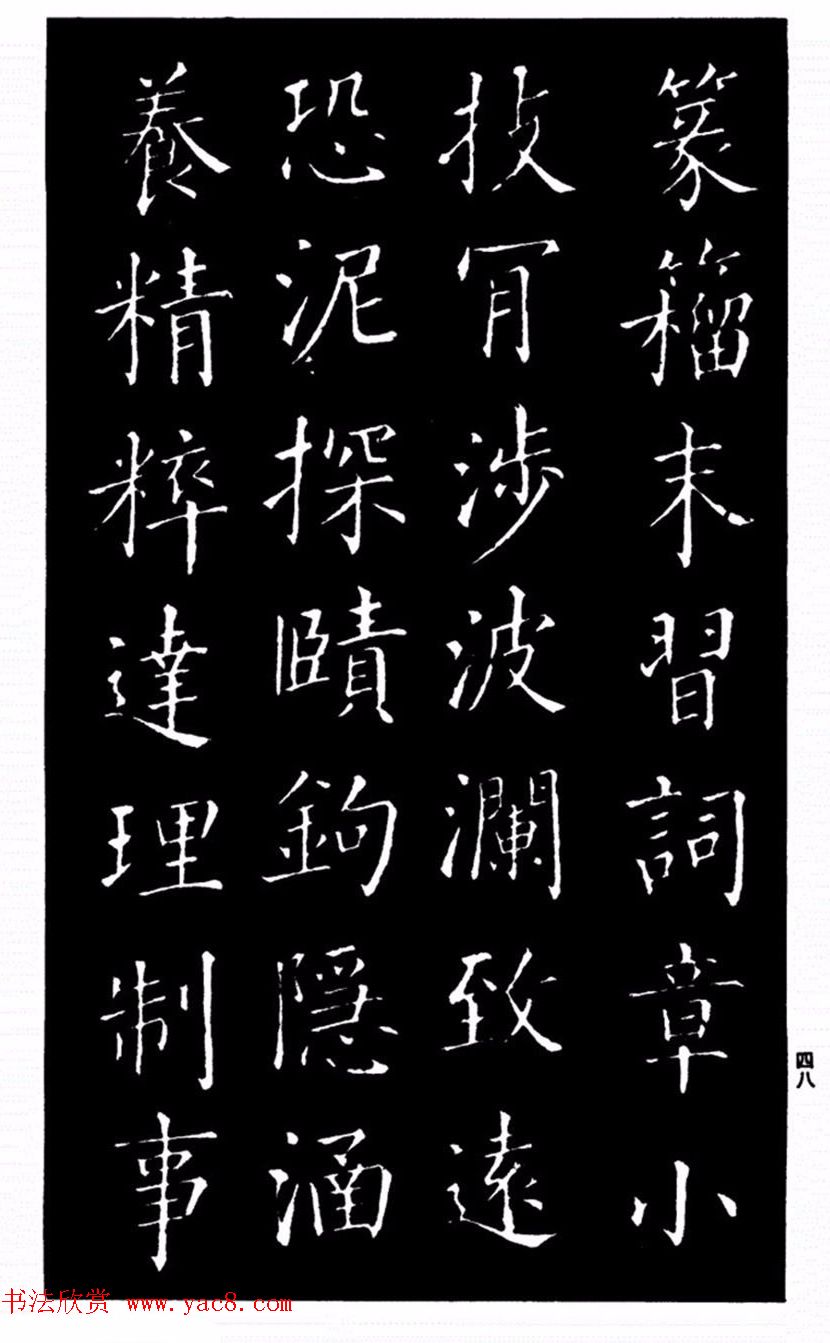 篆籕末習詞章小
技肎涉波瀾致遠
恐泥探賾鉤隱涵
養精粹達理制事
四八
书法欣赏 www.yac8.com